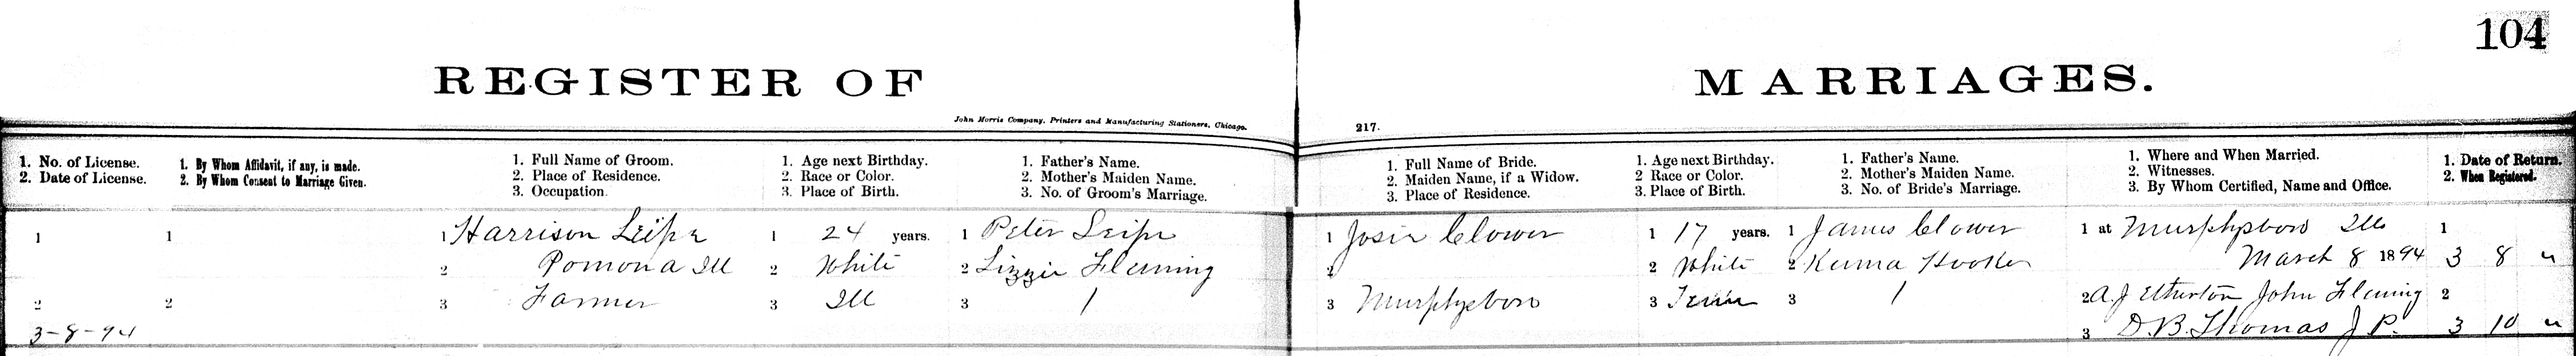 104
REGISTER OF MARRIAGES.
John Morris Company, Printers and Manufacturing Stationers, Chicago.
217.
1. No. of License.
2. Date of License.
1. By Whom Affidavit, if any, is made.
2. By Whom Consent to Marriage Given.
1. Full Name of Groom.
2. Place of Residence.
3. Occupation.
1. Age next Birthday.
2. Race or Color.
3. Place of Birth.
1. Father's Name.
2. Mother's Maiden Name.
3. No. of Groom's Marriage.
1. Full Name of Bride.
2. Maiden Name, if a Widow.
3. Place of Residence.
1. Age next Birthday.
2 Race or Color.
3. Place of Birth.
1. Father's Name.
2. Mother's Maiden Name.
3. No. of Bride's Marriage.
1. Where and When Married.
2. Witnesses.
3. By Whom Certified, Name and Office.
1. Date of Return.
2. When Registered.
1
2
3-8-94
1
2
1 Harrison Leipe
2 Pomona Ill
3 Farmer
1 24 years.
2 White
3 Ill
1 Peter Leipe
2 Lizzie Fleming
3 1
1 Josie Clower
2
3 Murphysboro
1 17 years.
2 White
3 Tenn
1 James Clower
2 Hooker
3 1
1 at Murphysboro Ills
March 8 1894
2 A. J Etherton John Fleming
3 D. B. Thomas J P.
1
3 8 "
2
3 10 "